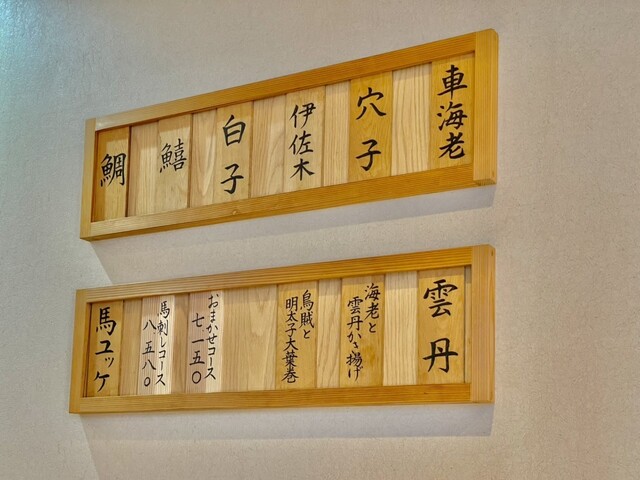 車海老
穴子
伊佐木
白子
鱚
鯛
雲丹
海老と
雲丹かき揚げ
烏賊と
明太子大葉巻
おまかせコース
七一五〇
馬刺しコース
八、五八〇
馬ユッケ